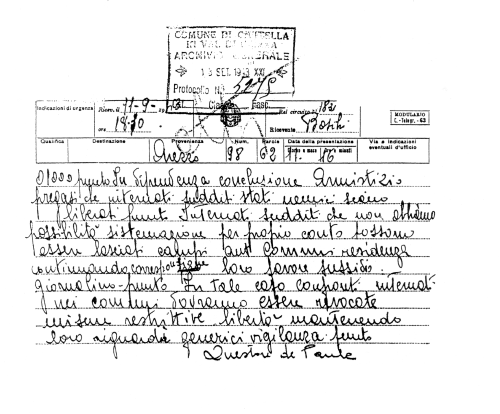 COMUNE DI CIVITELLA
IN VAL DI CHIANA
ARCHIVIO GENERALE
13 SET. 1943 XXI
Protocollo N. 3275
Cat. Classe Fasc.
Indicazioni di urgenza
Ricev. il 11-9-
Pel circuito N. 182
ore 18.30
Ricevente
MODULARIO
C.-Telegr. - 63
Qualifica Destinazione Provenienza Num. Parole Data della presentazione Via e indicazioni eventuali d'ufficio
Giorno e mese Ore e minuti
Arezzo 98 62 11. 16
01000 punto In dipendenza conclusione Armistizio
pregasi che internati sudditi stati nemici siano
liberati punto Internati sudditi che non abbiano
possibilità sistemazione per proprio conto possono
essere lasciati campi aut Comuni residenza
continuando loro favore sussidio
giornaliero punto In tale caso confronti internati
nei comuni dovranno essere revocate
misure restrittive libertà mantenendo
loro riguardi generici vigilanza punto
Questore de